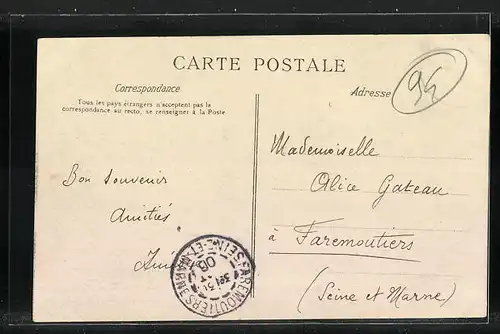 CARTE POSTALE
Correspondance
Tous les pays étrangers n'acceptent pas la
correspondance au recto, se renseigner à la Poste
Adresse
94
Mademoiselle
Alice Gateau
à Faremoutiers
(Seine et Marne)
Bon souvenir
Amitiés
FAREMOUTIERS
SEINE-ET-MARNE
31
06